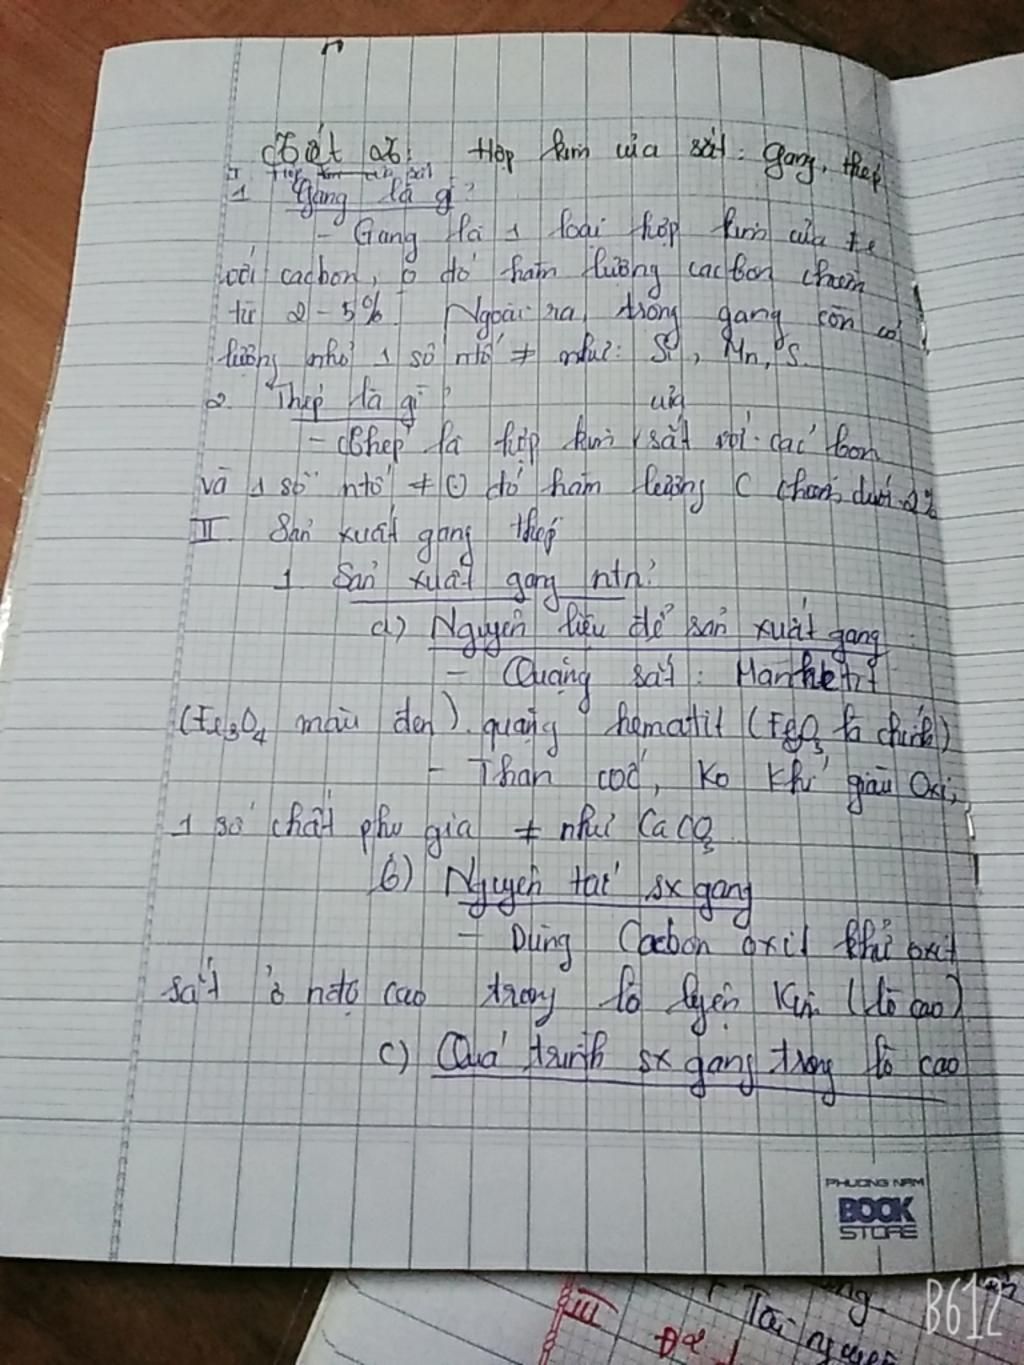 Tiết 25: Hợp kim của sắt: Gang, thép
I. Hợp kim của sắt
1 Gang là gì?
- Gang là 1 loại hợp kim của Fe
với cacbon, ở đó hàm lượng cacbon chiếm
từ 2-5%. Ngoài ra, trong gang còn có
lượng nhỏ 1 số ntố ≠ như: Si, Mn, S.
2. Thép là gì?
- Thép là hợp kim của sắt với các bon
và 1 số ntố ≠ ở đó hàm lượng C chiếm dưới 2%
II. Sản xuất gang thép
1 Sản xuất gang ntn?
a) Nguyên liệu để sản xuất gang
- Quặng sắt: Manhetit
(Fe3O4 màu đen). quặng hematit (Fe2O3 là chính)
- Than cốc, Ko khí giàu Oxi,
1 số chất phụ gia ≠ như CaCO3
b) Nguyên tắc sx gang
- Dùng Cacbon oxit khử oxit
sắt ở nđộ cao trong lò luyện Kim (lò cao)
c) Quá trình sx gang trong lò cao
PHUONG NAM
BOOK
STORE
III
Tài nguyên
B612